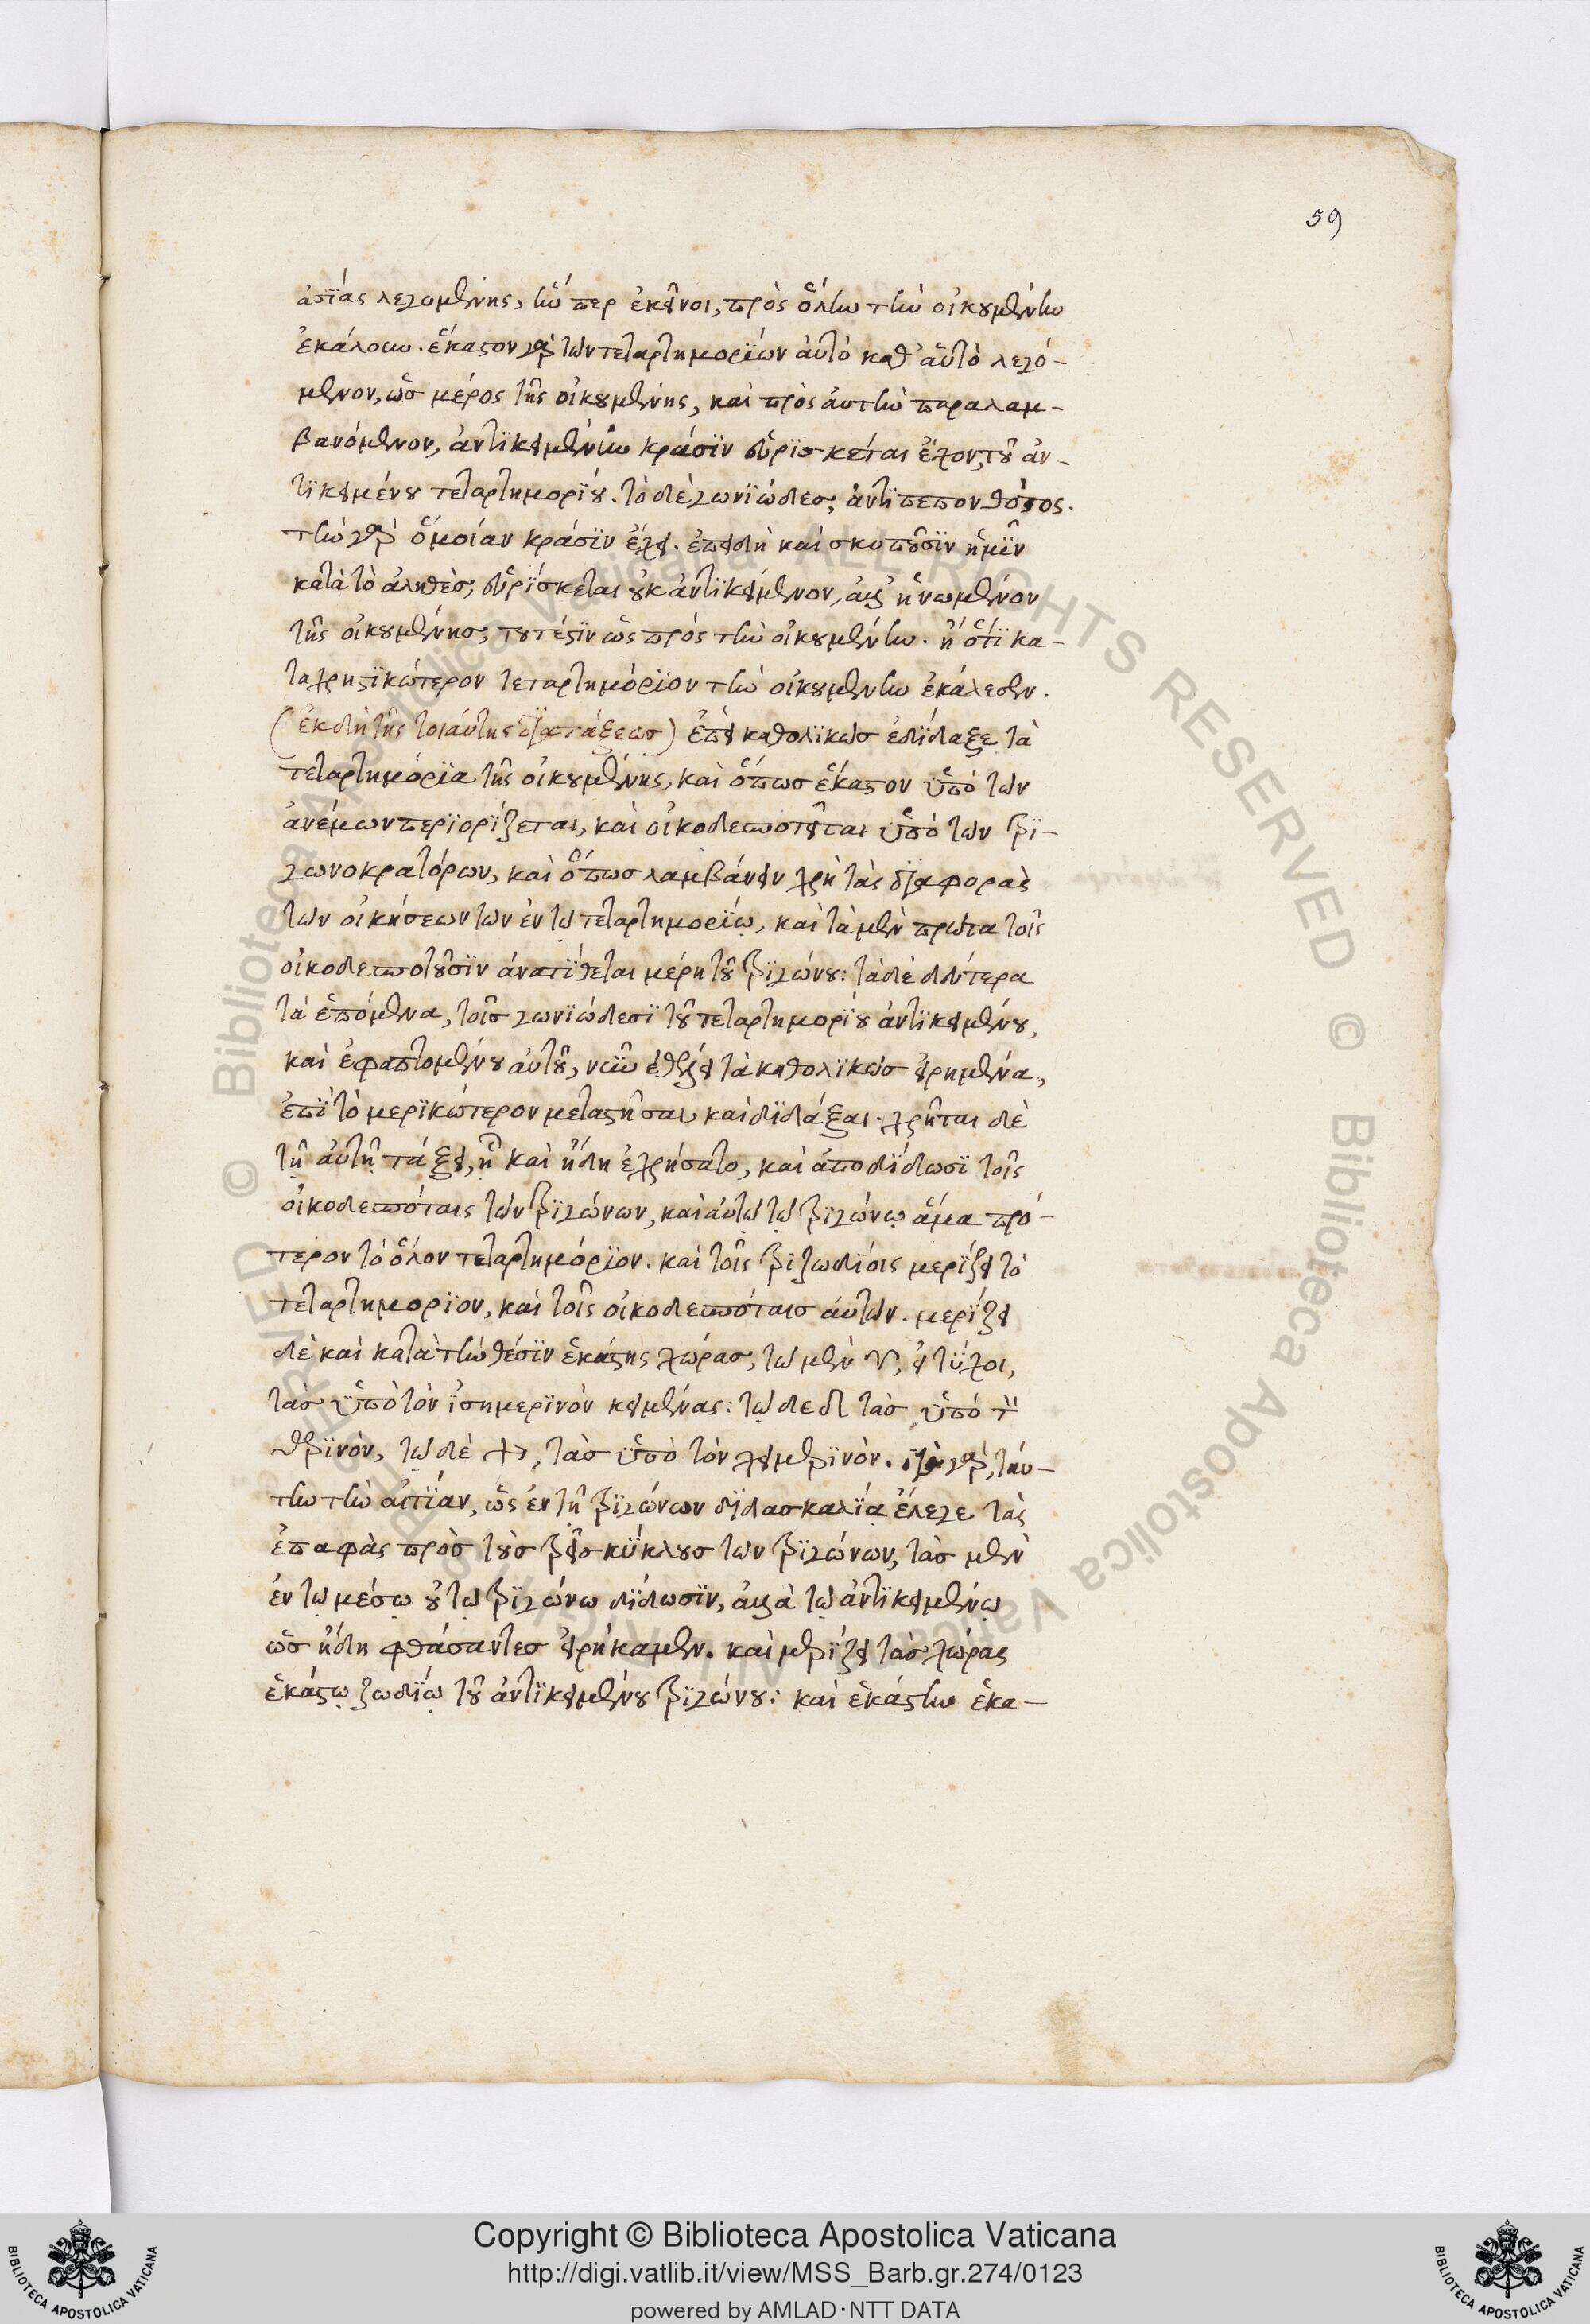 59
ἀσίας λεγομένης, ἥν περ ἐκεῖνοι, πρὸς ὅλην τὴν οἰκουμένην
ἐκάλουν. ἕκαστον γὰρ τῶν τεταρτημορίων αὐτὸ καθ' αὑτὸ λεγό-
μενον, ὡς μέρος τῆς οἰκουμένης, καὶ πρὸς αὐτὴν παραλαμ-
βανόμενον, ἀντικειμένην κράσιν εὑρίσκεται ἔχον, τοῦ ἀν-
τικειμένου τεταρτημορίου. τὸ δὲ γωνιῶδες, ἀντιπεπονθότος.
τὴν γὰρ ὁμοίαν κράσιν ἔχει. ἐπειδὴ καὶ σκοποῦσιν ἡμῖν
κατὰ τὸ ἀληθὲς, εὑρίσκεται οὐκ ἀντικείμενον, ἀλλ' ἡνωμένον
τῆς οἰκουμένης, τουτέστιν ὡς πρὸς τὴν οἰκουμένην. ἢ ὅτι κα-
ταχρηστικώτερον τεταρτημόριον τὴν οἰκουμένην ἐκάλεσεν.
(ἐκ δὴ τῆς τοιαύτης διατάξεως) ἐπεὶ καθολικῶς ἐδίδαξε τὰ
τεταρτημόρια τῆς οἰκουμένης, καὶ ὅπως ἕκαστον ὑπὸ τῶν
ἀνέμων περιορίζεται, καὶ οἰκοδεσποτεῖται ὑπὸ τῶν τρι-
γωνοκρατόρων, καὶ ὅπως λαμβάνειν χρὴ τὰς διαφορὰς
τῶν οἰκήσεων τῶν ἐν τῷ τεταρτημορίῳ, καὶ τὰ μὲν πρῶτα τοῖς
οἰκοδεσποτοῦσιν ἀνατίθεται μέρη τοῦ τριγώνου: τὰ δὲ δεύτερα
τὰ ἑπόμενα, τοῖς γωνιώδεσι τοῦ τεταρτημορίου ἀντικειμένου,
καὶ ἐφαπτομένου αὐτοῦ, νῦν ἐθέλει τὰ καθολικῶς εἰρημένα,
ἐπὶ τὸ μερικώτερον μεταστῆσαι, καὶ διδάξαι. χρῆται δὲ
τῇ αὐτῇ τάξει, ᾗ καὶ ἤδη ἐχρήσατο, καὶ ἀποδίδωσι τοῖς
οἰκοδεσπόταις τῶν τριγώνων, καὶ αὐτῷ τῷ τριγώνῳ ἅμα πρό-
τερον τὸ ὅλον τεταρτημόριον. καὶ τοῖς τριζωδίοις μερίζει τὸ
τεταρτημόριον, καὶ τοῖς οἰκοδεσπόταις αὐτῶν. μερίζει
δὲ καὶ κατὰ τὴν θέσιν ἑκάστης χώρας, τῷ μὲν ♈, εἰ τύχοι,
τὰς ὑπὸ τὸν ἰσημερινὸν κειμένας: τῷ δὲ ♌ τὰς ὑπὸ τὸν
θερινὸν, τῷ δὲ ♐, τὰς ὑπὸ τὸν χειμερινόν. διὰ γὰρ, ταύ-
την τὴν αἰτίαν, ὡς ἐν τῇ τριγώνων διδασκαλίᾳ ἔλεγε τὰς
ἐπαφὰς πρὸς τοὺς τρεῖς κύκλους τῶν τριγώνων, τὰς μὲν
ἐν τῷ μέσῳ οὐ τῷ τριγώνῳ δίδωσιν, ἀλλὰ τῷ ἀντικειμένῳ
ὡς ἤδη φθάσαντες εἰρήκαμεν. καὶ μερίζει τὰς χώρας
ἑκάστῳ ζωδίῳ τοῦ ἀντικειμένου τριγώνου: καὶ ἑκάστην ἑκα-
Copyright © Biblioteca Apostolica Vaticana
http://digi.vatlib.it/view/MSS_Barb.gr.274/0123
powered by AMLAD·NTT DATA